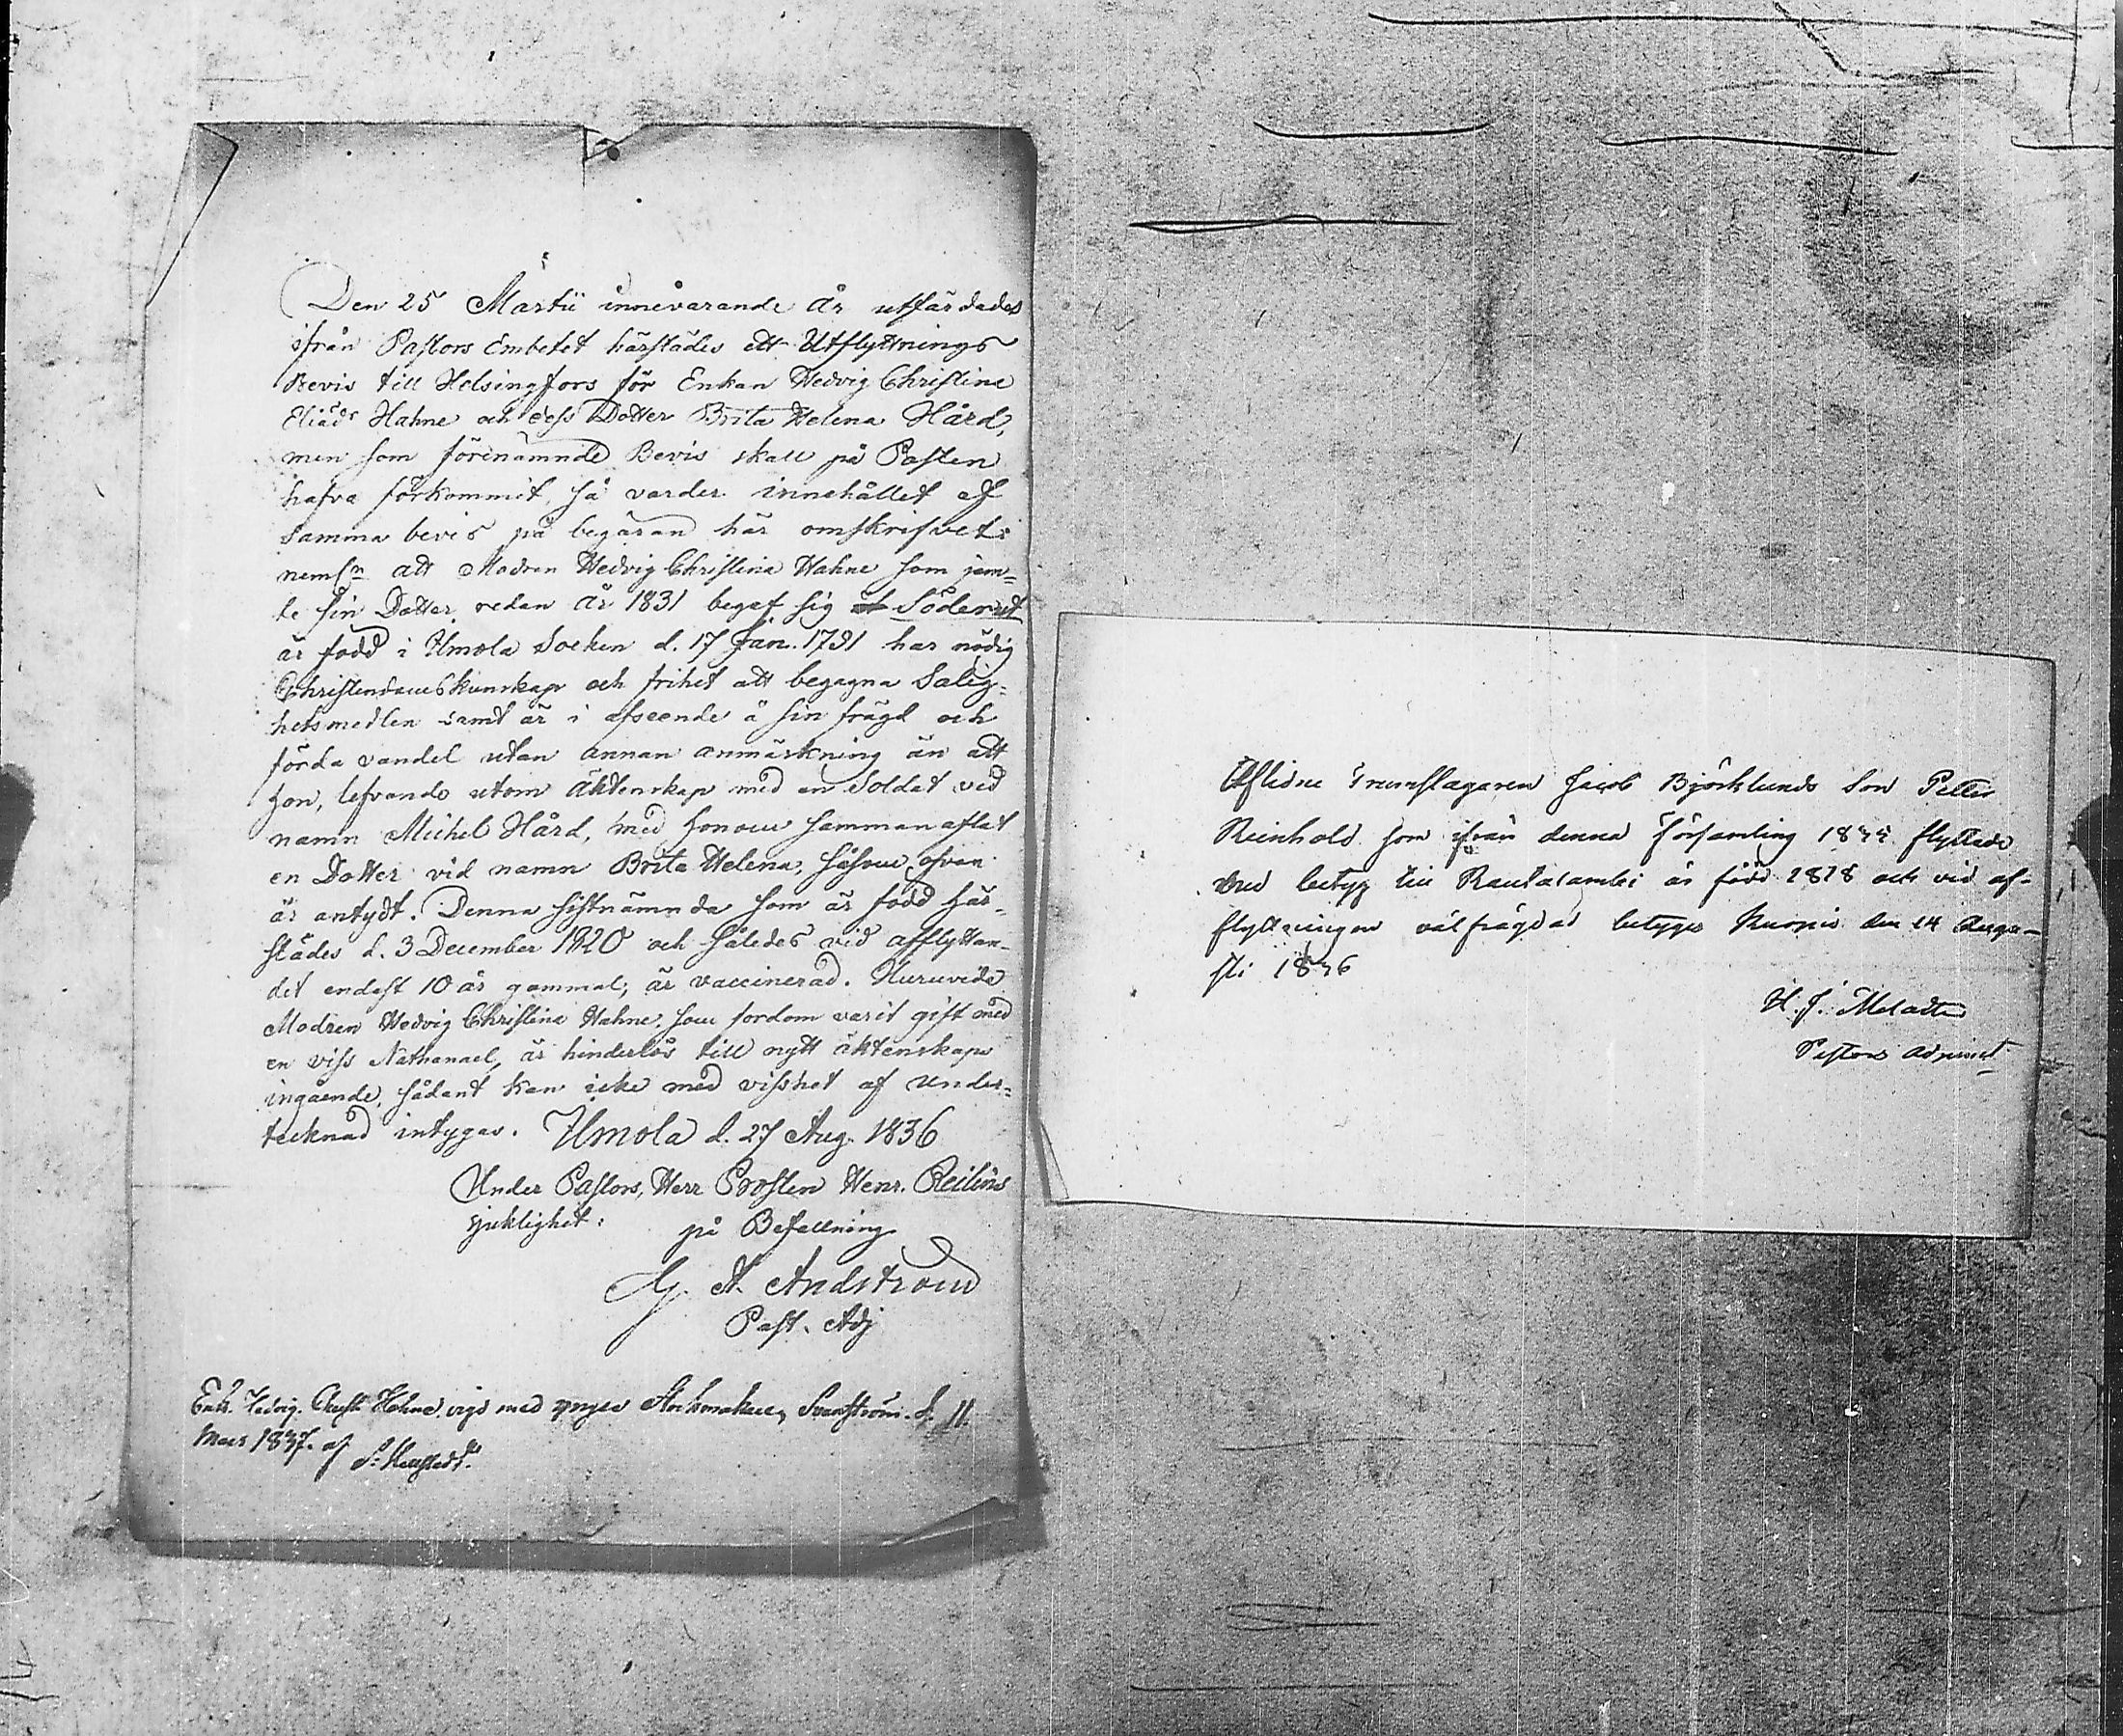 Den 25 Martii innevarande år utfärdades
ifrån Pastors Embetet härstädes ett Utflyttnings
Bevis till Helsingfors för Enkan Hedvig Christina
Eliædr Hahne och dess Dotter Brita Helena Hård,
men som förenämnde Bevis skall på Posten
hafva förkommit, så varder innehållet af
samma bevis på begäran här omskrifvet:
neml:n att Modren Hedvig Christina Hahne som jem=
te sin Dotter redan år 1831 begaf sig Söderut
är född i Ilmola Socken d. 17 Jan. 1791 har nödig
Christendomskunskap och frihet att begagna Salig=
hetsmedlen samt är i afseende å sin frägd och
förda vandel utan annan anmärkning än att
hon, lefvande utom äktenskap med en Soldat vid
namn Michel Hård, med honom sammanaflat
en Dotter vid namn Brita Helena, såsom ofvan
är antydt. Denna sistnämnda som är född här=
städes d. 3 December 1820 och således vid afflyttan=
det endast 10 år gammal, är vaccinerad. Huruvida
Modren Hedvig Christina Hahne, som fordom varit gift med
en viss Nathanael, är hinderlös till nytt äktenskaps
ingående, sådant kan icke med visshet af under=
tecknad intygas. Ilmola d. 27 Aug. 1836
Under Pastors, Herr Prosten Henr. Reilins
sjuklighet:
på Befallning
G. A. Andström
Past. Adj
Enk. Hedvig Christ. Hahne vigd med Svanström d. 11
Mars 1837. af
Aflidne Trumslagaren Jacob Björklunds Son Petter
Reinhold som ifrån denna församling flyttade
med betyg till Rautalambi är född 1818 och vid af=
flyttningen välfrägdad betygar Kuopio den 14 Augu=
sti 1836
H. J.
Pastors adjunct